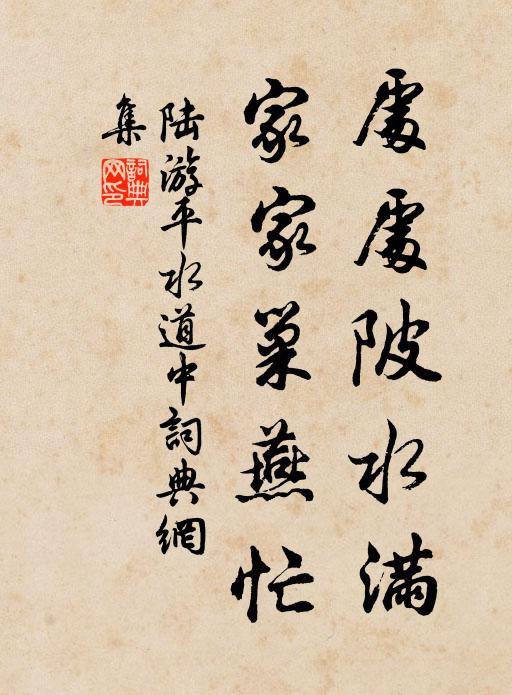 處處陂水滿
家家巢燕忙
陸游平水道中詞典網
集
詞典網印